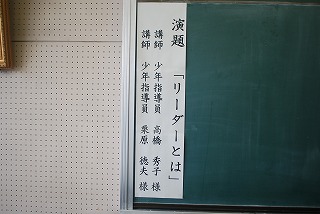 演題　「リーダーとは」
講師　少年指導員　高橋　秀子　様
講師　少年指導員　栗原　徳夫　様